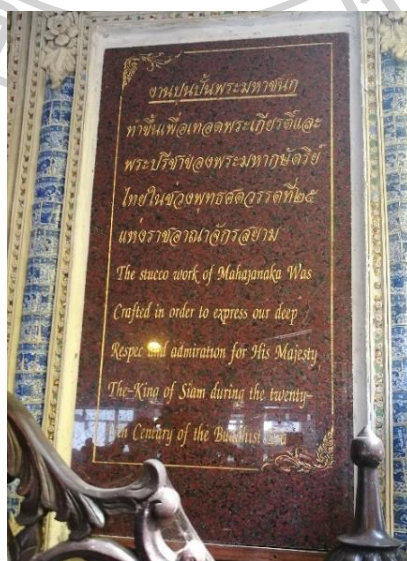 งานปูนปั้นพระมหาชนก
ทำขึ้นเพื่อเทอดพระเกียรติ์และ
พระปรีชาของพระมหากษัตริย์
ไทยในช่วงพุทธศตวรรตที่๒๕
แห่งราชอาณาจักรสยาม
The stucco work of Mahajanaka Was
Crafted in order to express our deep
Respec and admiration for His Majesty
The-King of Siam during the twenty-
Century of the Buddhist